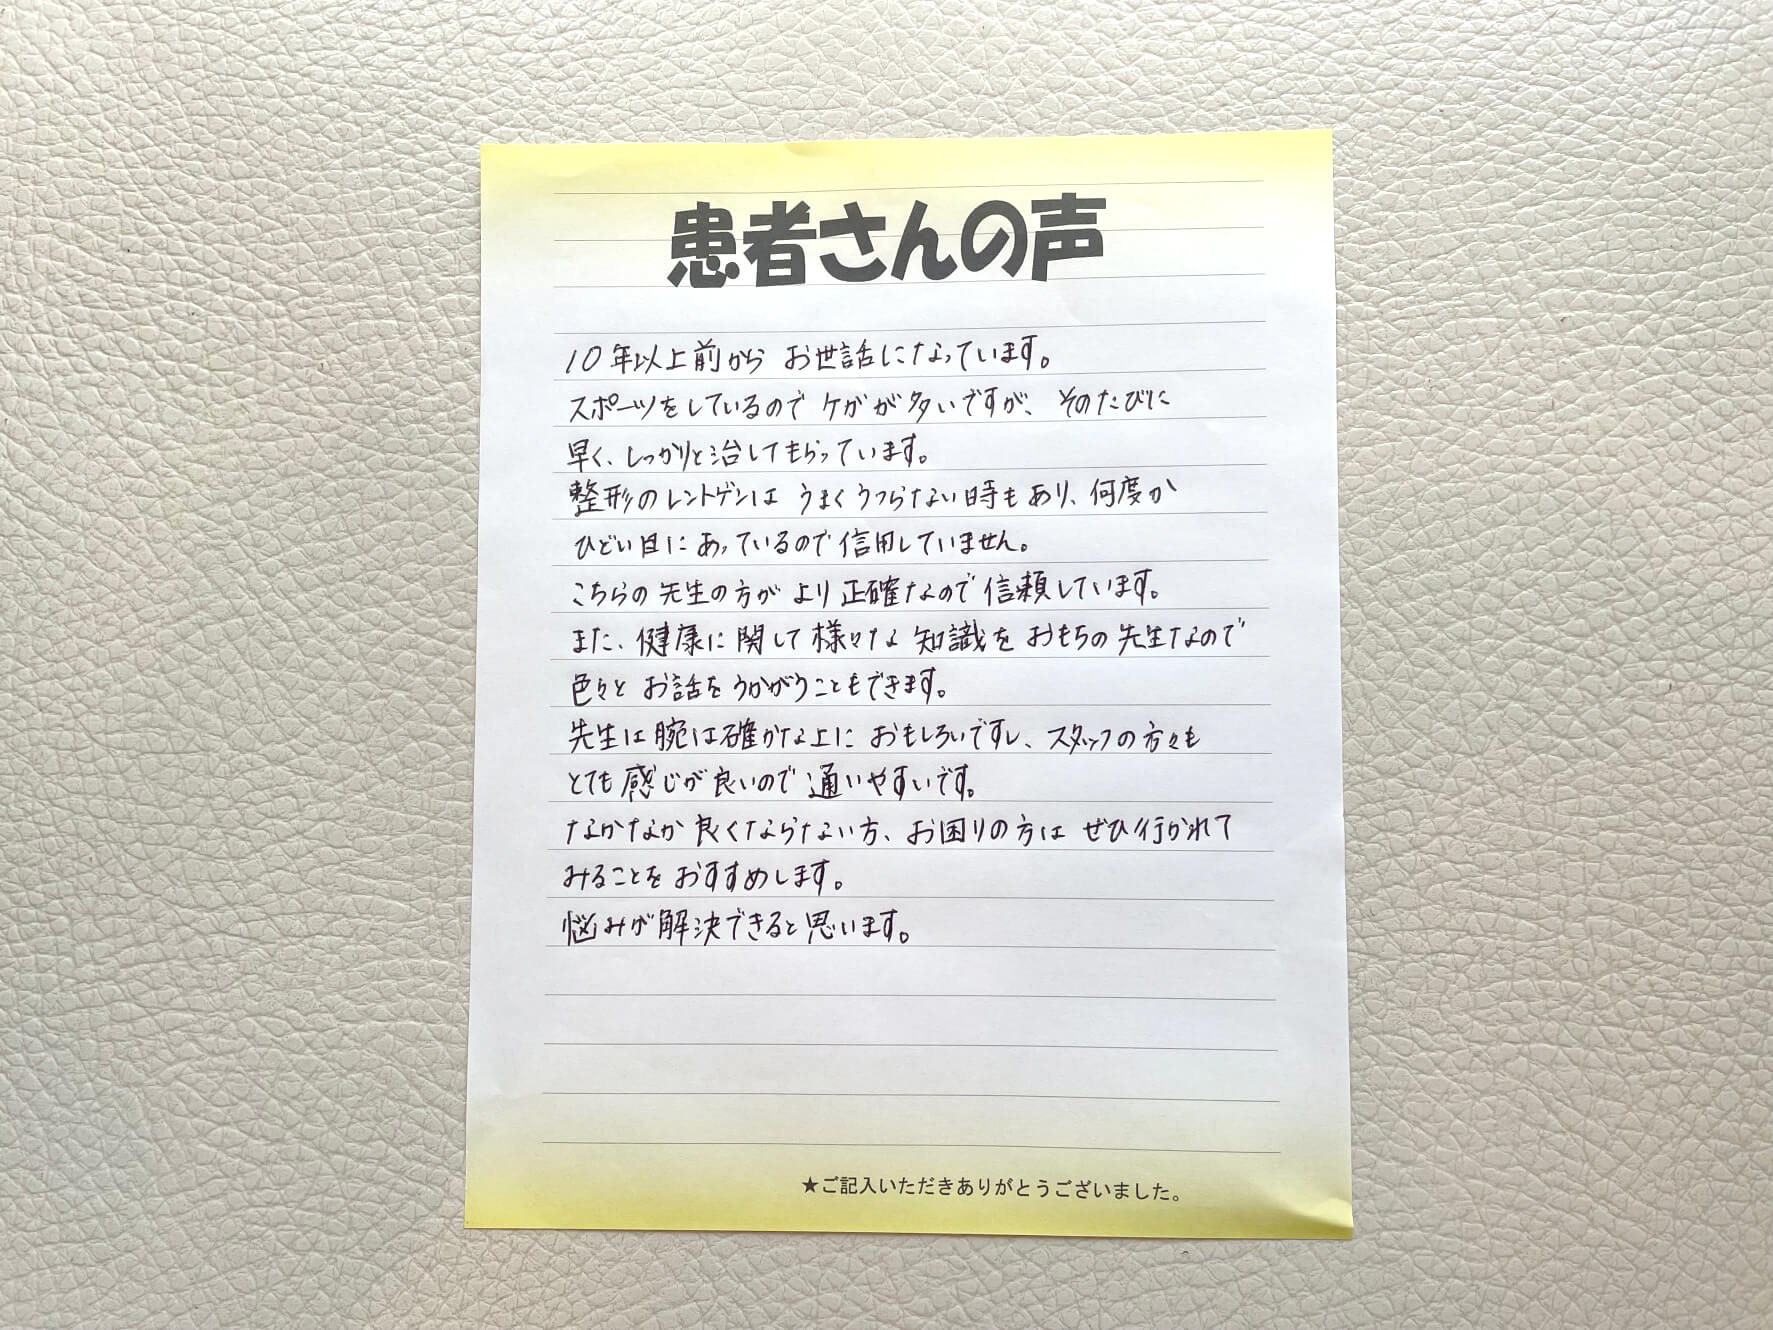 患者さんの声
10年以上前から お世話になっています。
スポーツをしているのでケガが多いですが、そのたびに
早く、しっかりと治してもらっています。
整形のレントゲンは うまくうつらない時もあり、何度か
ひどい目にあっているので信用していません。
こちらの先生の方がより正確なので信頼しています。
また、健康に関して様々な知識をおもちの先生なので
色々とお話をうかがうこともできます。
先生は腕は確かな上におもしろいですし、スタッフの方々も
とても感じが良いので通いやすいです。
なかなか良くならない方、お困りの方は ぜひ行かれて
みることをおすすめします。
悩みが解決できると思います。
★ご記入いただきありがとうございました。